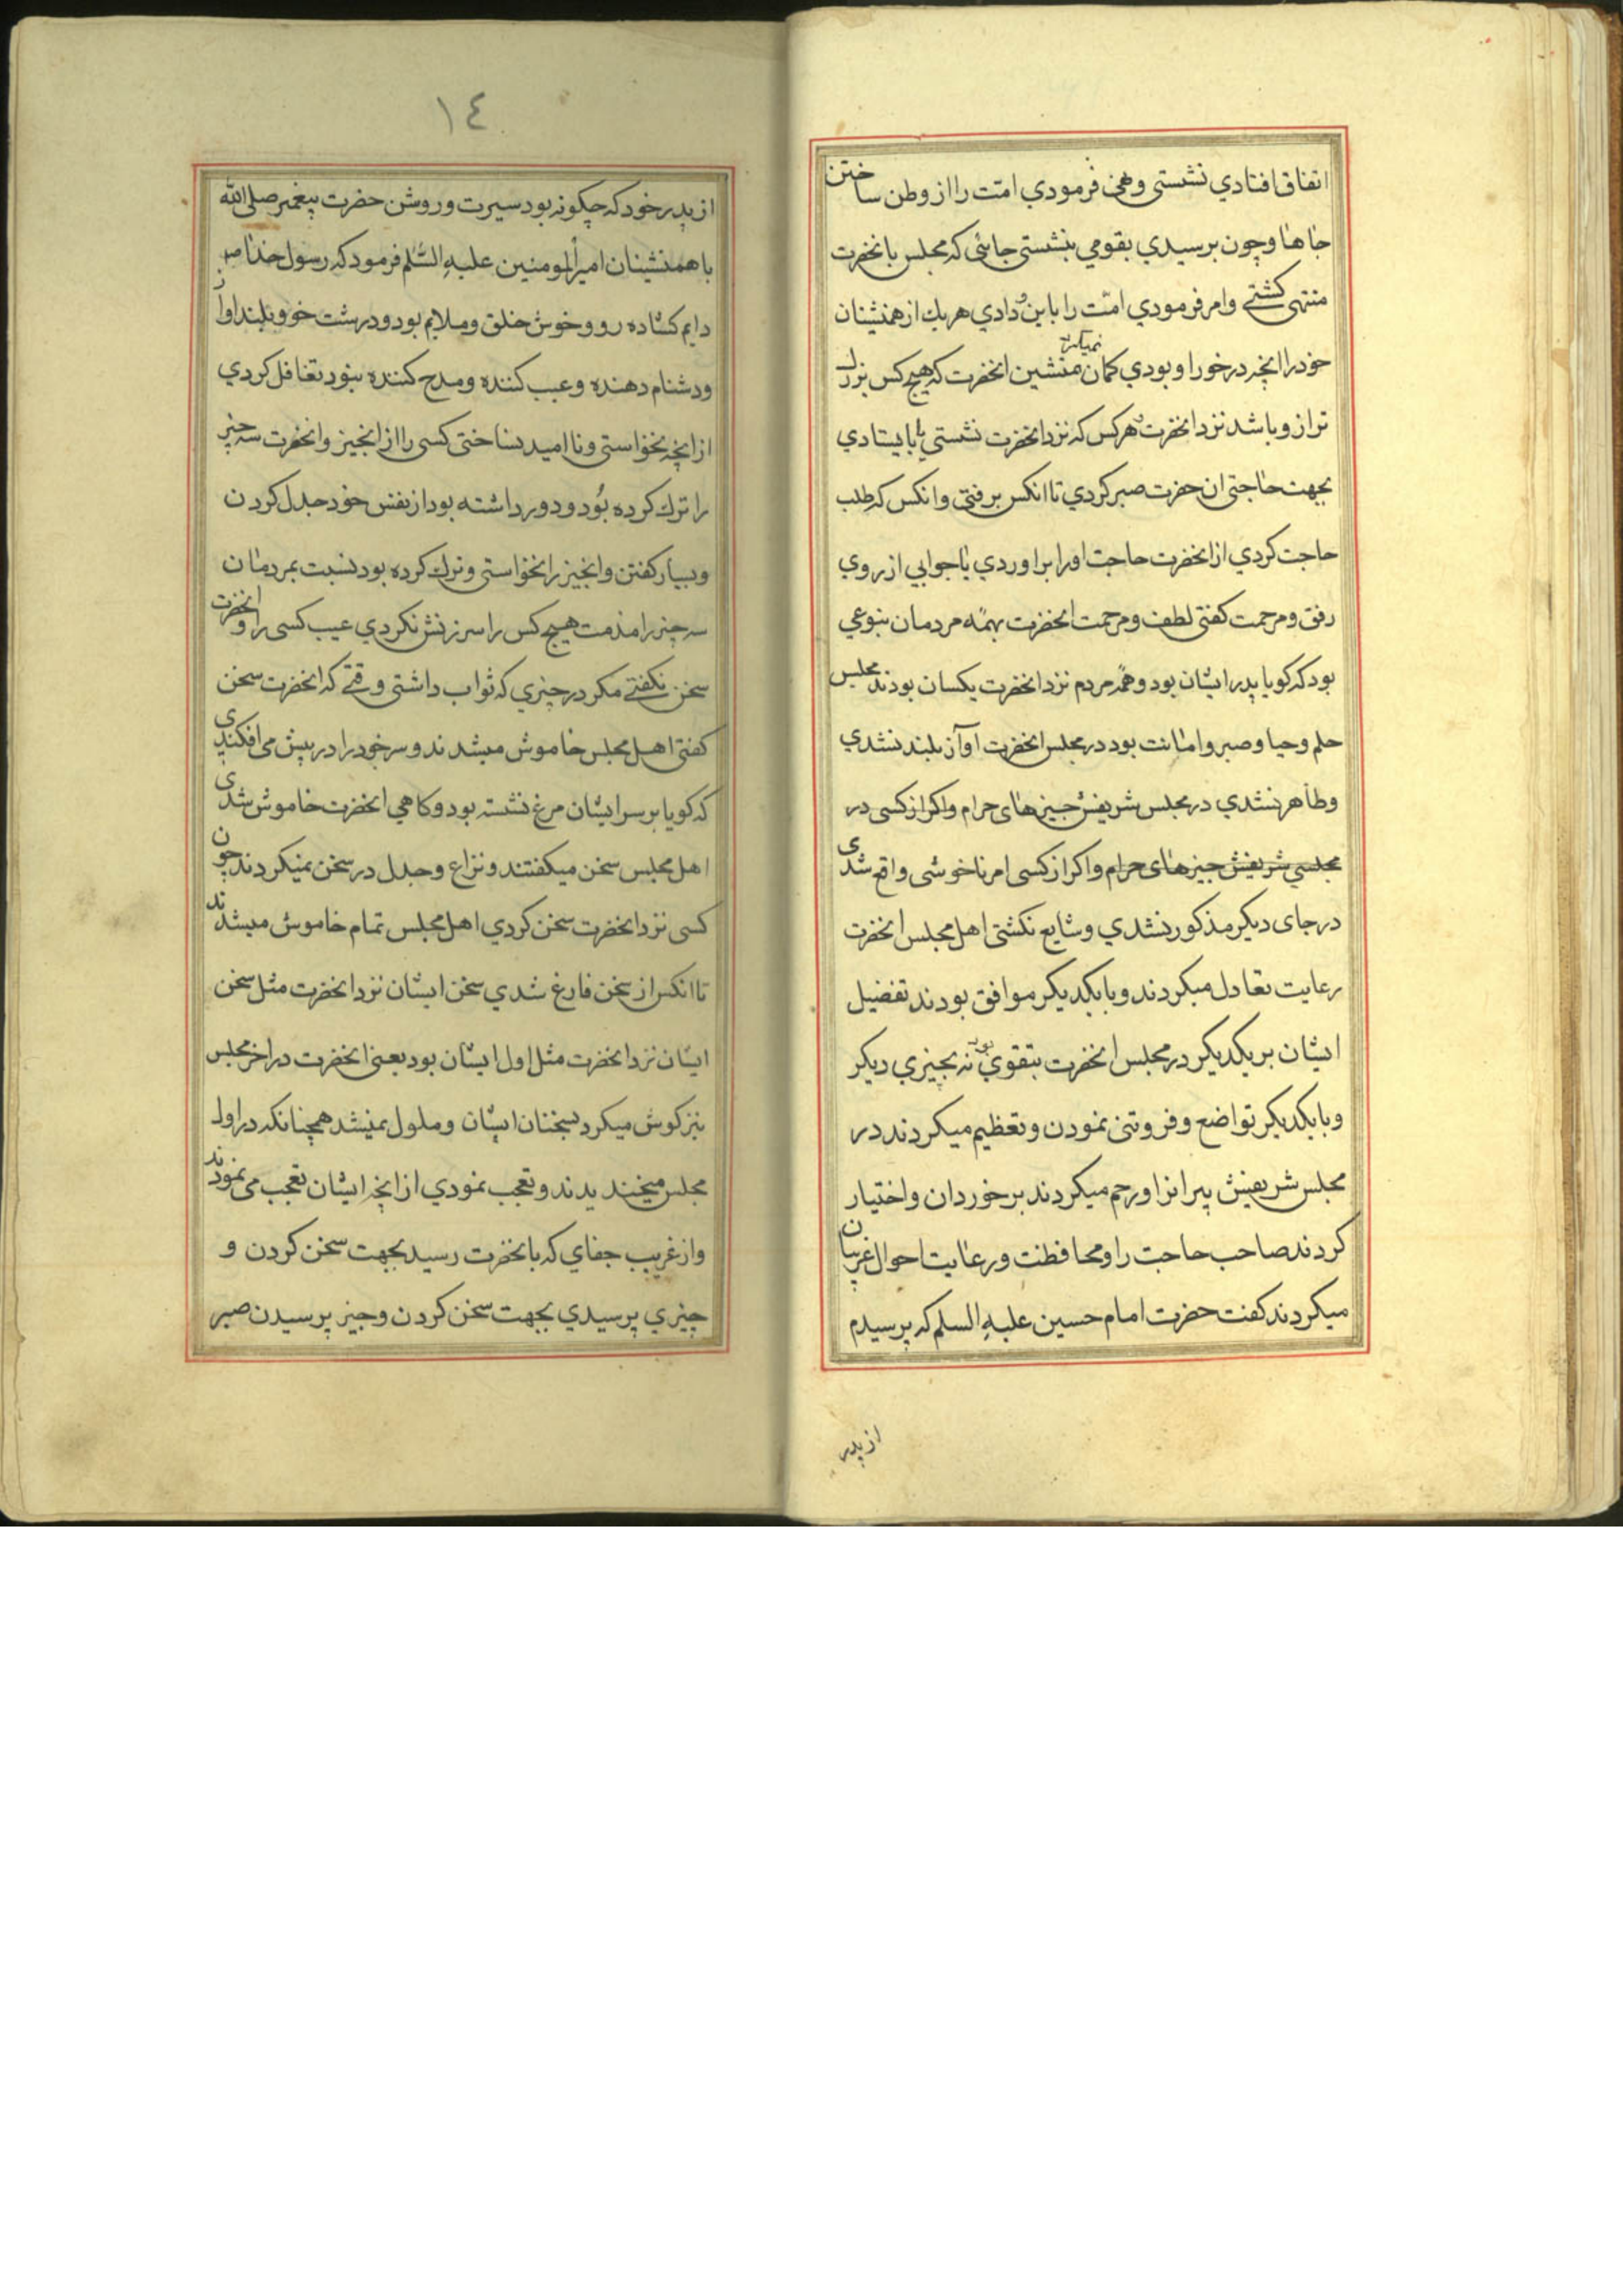 اتفاق افتادي نشستي ونهي فرمودي امّت را از وطن ساختن
جاها وچون برسيدي بقومي بنشستي جائي كه مجلس بانحضرت
منتهى كشتے وامر فرمودي امّت را باين ودادي هريك از همنشينان
خود را انچه در خور او بودي كمان نميكرد منشين انحضرت كه هيچ كس بزرك
تر از و باشد نزد انحضرت هركس كه نزد انحضرت نشستي يا بايستادي
بجهت حاجتي ان حضرت صبر كردي تا انكس برفتي وانكس كه طلب
حاجت كردي از انحضرت حاجت اورا براوردي يا جوابي از روي
رفق ومرحمت كفتي لطف ومرحمت انحضرت بهمه مردمان بنوعي
بود كه كويا پدر ايشان بود وهمه مردم نزد انحضرت يكسان بودند مجلس
حلم وحيا وصبر وامانت بود در مجلس انحضرت اواز بلند نشدي
وظاهر نشدي در مجلس شريفش چيزهاى حرام واكر از كسى در
مجلسي شريفش چيزهاى حرام واكر از كسى امر ناخوشى واقع شدى
در جاى ديكر مذكور نشدي وشايع نكشتى اهل مجلس انحضرت
رعايت تعادل ميكردند وبا يكديكر موافق بودند تفضيل
ايشان بر يكديكر در مجلس انحضرت بتقوي بود نه بچيزي ديكر
وبا يكديكر تواضع وفروتنى نمودن وتعظيم ميكردند در
مجلس شريفش پيرانرا ورحم ميكردند بر خوردان واختيار
كردند صاحب حاجت را ومحافظت ورعايت احوال غريبان
ميكردند كفت حضرت امام حسين عليه السلم كه پرسيدم
از پدر
١٤
از پدر خود كه چكونه بود سيرت وروش حضرت پيغمبر صلى الله
با همنشينان امير المومنين عليه السّلم فرمود كه رسول خدا ص
دايم كشاده رو وخوش خلق وملايم بود ودرشت خو وبلند اواز
ودشنام دهنده وعيب كننده ومدح كننده نبود تغافل كردي
از انچه نخواستى ونااميد نساختى كسى را از انچيز وانحضرت سه چيز
را ترك كرده بود ودور داشته بود از نفس خود جدل كردن
وبسيار كفتن وانچيز را نخواستى وترك كرده بود نسبت بمردمان
سه چيز را مذمت هيچ كس را سرزنش نكردي عيب كسى را وانحضرت
سخن نكفتے مكر در چيزي كه ثواب داشتى وقتے كه انحضرت سخن
كفتى اهل مجلس خاموش ميشدند وسر خود را در پيش مى افكندى
كه كويا بر سر ايشان مرغ نشسته بود وكاهي انحضرت خاموش شدى
اهل مجلس سخن ميكفتند ونزاع وجدل در سخن نميكردند چون
كسى نزد انحضرت سخن كردي اهل مجلس تمام خاموش ميشدند
تا انكس از سخن فارغ شدي سخن ايشان نزد انحضرت مثل سخن
ايشان نزد انحضرت مثل اول ايشان بود يعنى انحضرت در اخر مجلس
نيز كوش ميكرد بسخنان ايشان وملول نميشد همچنانكه در اول
مجلس ميخنديدند وتعجب نمودي از انچه ايشان تعجب مى نمودند
واز غريب جفاي كه بانحضرت رسيد بجهت سخن كردن و
چيزي پرسيدي بجهت سخن كردن وچيز پرسيدن صبر